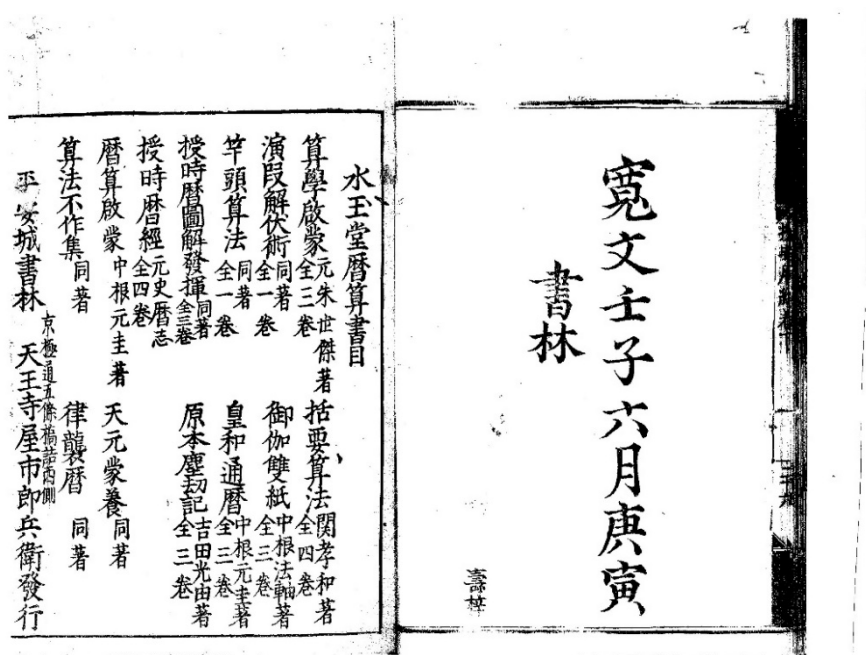 寛文壬子六月庚寅
書林
壽梓
水玉堂暦算書目
算學啟蒙 元朱世傑著 全三卷
括要算法 関孝和著 全四卷
演段解伏術 同著 全一卷
御伽雙紙 中根法軸著 全三卷
竿頭算法 同著 全一卷
皇和通暦 中根元圭著 全三卷
授時暦圖解發揮 同著 全三卷
原本塵劫記 吉田光由著 全三卷
授時暦經 元史暦志 全四卷
暦算啟蒙 中根元圭著
天元蒙養 同著
算法不作集 同著
律襲暦 同著
京極通五條橋詰西側
平安城書林 天王寺屋市郎兵衛發行